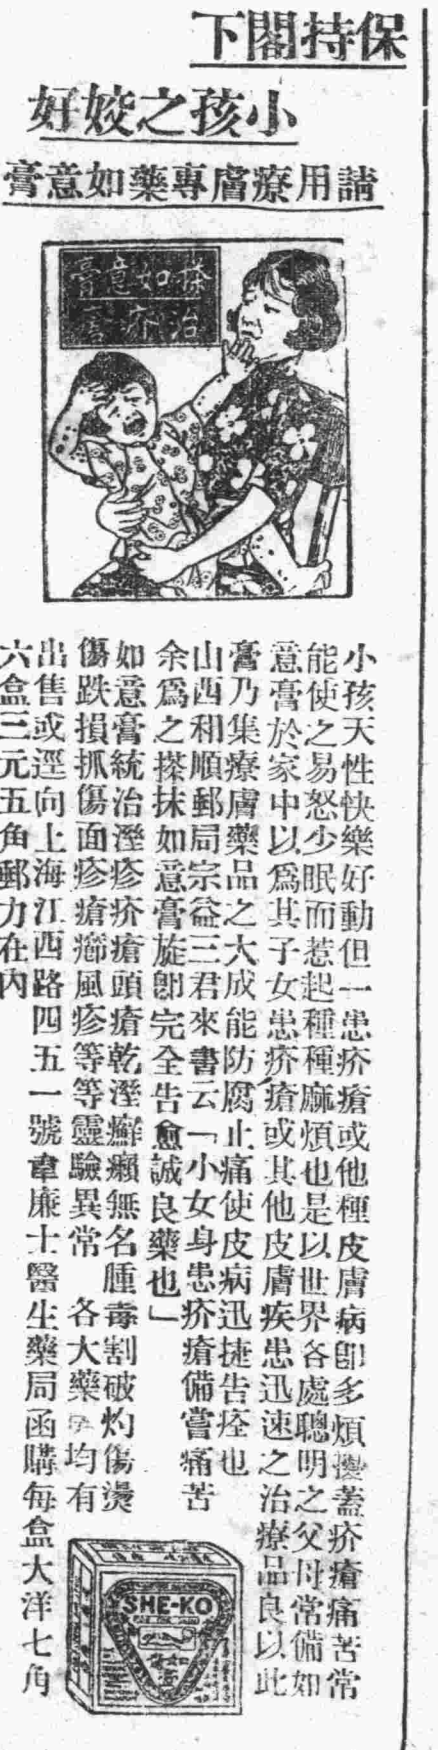 保持閣下
小孩之姣好
請用療膚專藥如意膏
搽如意膏
治疥瘡
小孩天性快樂好動但一患疥瘡或他種皮膚病卽多煩擾蓋疥瘡痛苦常
能使之易怒少眠而惹起種種麻煩也是以世界各處聰明之父母常備如
意膏於家中以爲其子女患疥瘡或其他皮膚疾患迅速之治療品良以此
膏乃集療膚藥品之大成能防腐止痛使皮病迅捷告痊也
山西和順郵局宗益三君來書云「小女身患疥瘡備嘗痛苦
余爲之搽抹如意膏旋卽完全告愈誠良藥也」
如意膏統治溼疹疥瘡頭瘡乾溼癬癩無名腫毒割破灼傷燙
傷跌損抓傷面疹瘡癤風疹等等靈驗異常 各大藥均有
出售或逕向上海江西路四五一號韋廉士醫生藥局函購每盒大洋七角
六盒三元五角郵力在內
SHE-KO
如意膏